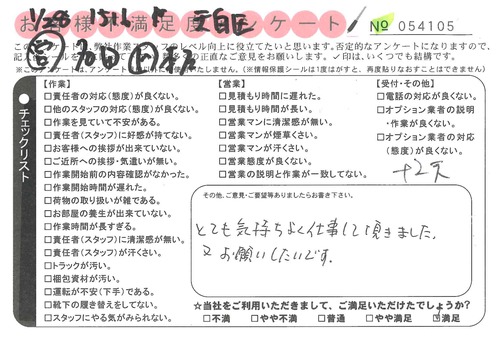 1/28 1511 文目区
お客様不満足度アンケート No 054105
このアンケートは、弊社作業スタッフのレベル向上に役立てたいと思います。否定的なアンケートになりますので、
お客様の正直なご意見をお願いします。✓印は、いくつでも結構です。
(※情報保護シールは1度はがすと、再度貼りなおすことはできません)
チェックリスト
【作業】
□責任者の対応(態度)が良くない。
□他のスタッフの対応(態度)が良くない。
□作業を見ていて不安がある。
□責任者(スタッフ)に好感が持てない。
□お客様への挨拶が出来ていない。
□ご近所への挨拶・気遣いが無い。
□作業開始前の内容確認がなかった。
□作業開始時間が遅れた。
□荷物の取り扱いが雑である。
□お部屋の養生が出来ていない。
□作業時間が長すぎる。
□責任者(スタッフ)に清潔感が無い。
□責任者(スタッフ)が汗くさい。
□トラックが汚い。
□梱包資材が汚い。
□運転が不安(下手)である。
□靴下の履き替えをしてない。
□スタッフにやる気がみられない。
【営業】
□見積もり時間に遅れた。
□見積もり時間が長い。
□営業マンに清潔感が無い。
□営業マンが煙草くさい。
□営業マンが汗くさい。
□営業態度が良くない。
□営業の説明と作業が一致してない。
【受付・その他】
□電話の対応が良くない。
□オプション業者の説明
・作業が良くない。
□オプション業者の対応
(態度)が良くない。
その他、ご意見・ご要望等ありましたらお書き下さい。
とても気持ちよく仕事して頂きました。
又お願いしたいです。
☆当社をご利用いただきまして、ご満足いただけたでしょうか?
□不満 □やや不満 □普通 □やや満足 ☑満足